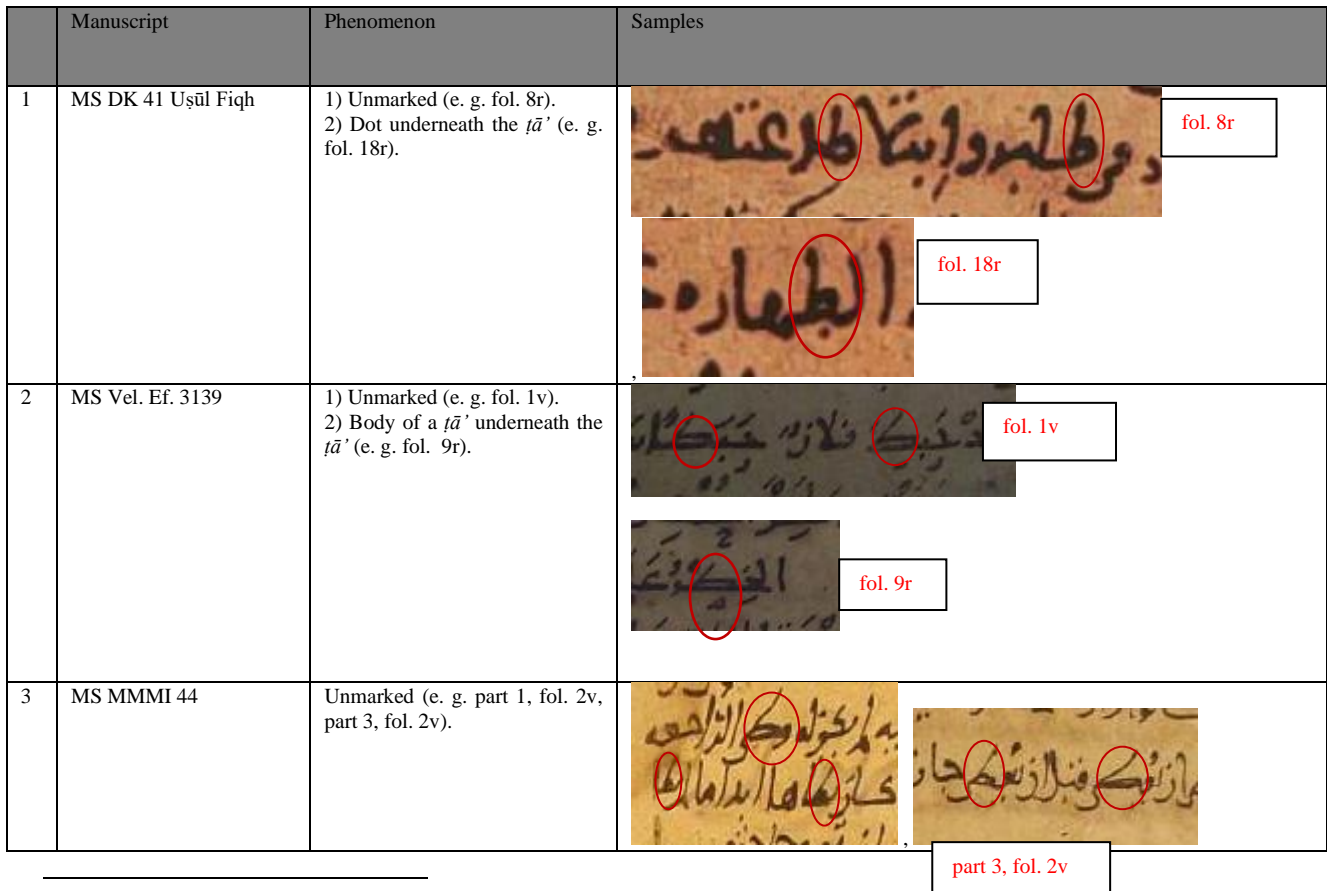 Manuscript
Phenomenon
Samples
1
MS DK 41 Uṣūl Fiqh
1) Unmarked (e. g. fol. 8r).
2) Dot underneath the ṭā’ (e. g.
fol. 18r).
fol. 8r
الطهاره
fol. 18r
,
2
MS Vel. Ef. 3139
1) Unmarked (e. g. fol. 1v).
2) Body of a ṭā’ underneath the
ṭā’ (e. g. fol. 9r).
fol. 1v
fol. 9r
3
MS MMMI 44
Unmarked (e. g. part 1, fol. 2v,
part 3, fol. 2v).
,
part 3, fol. 2v